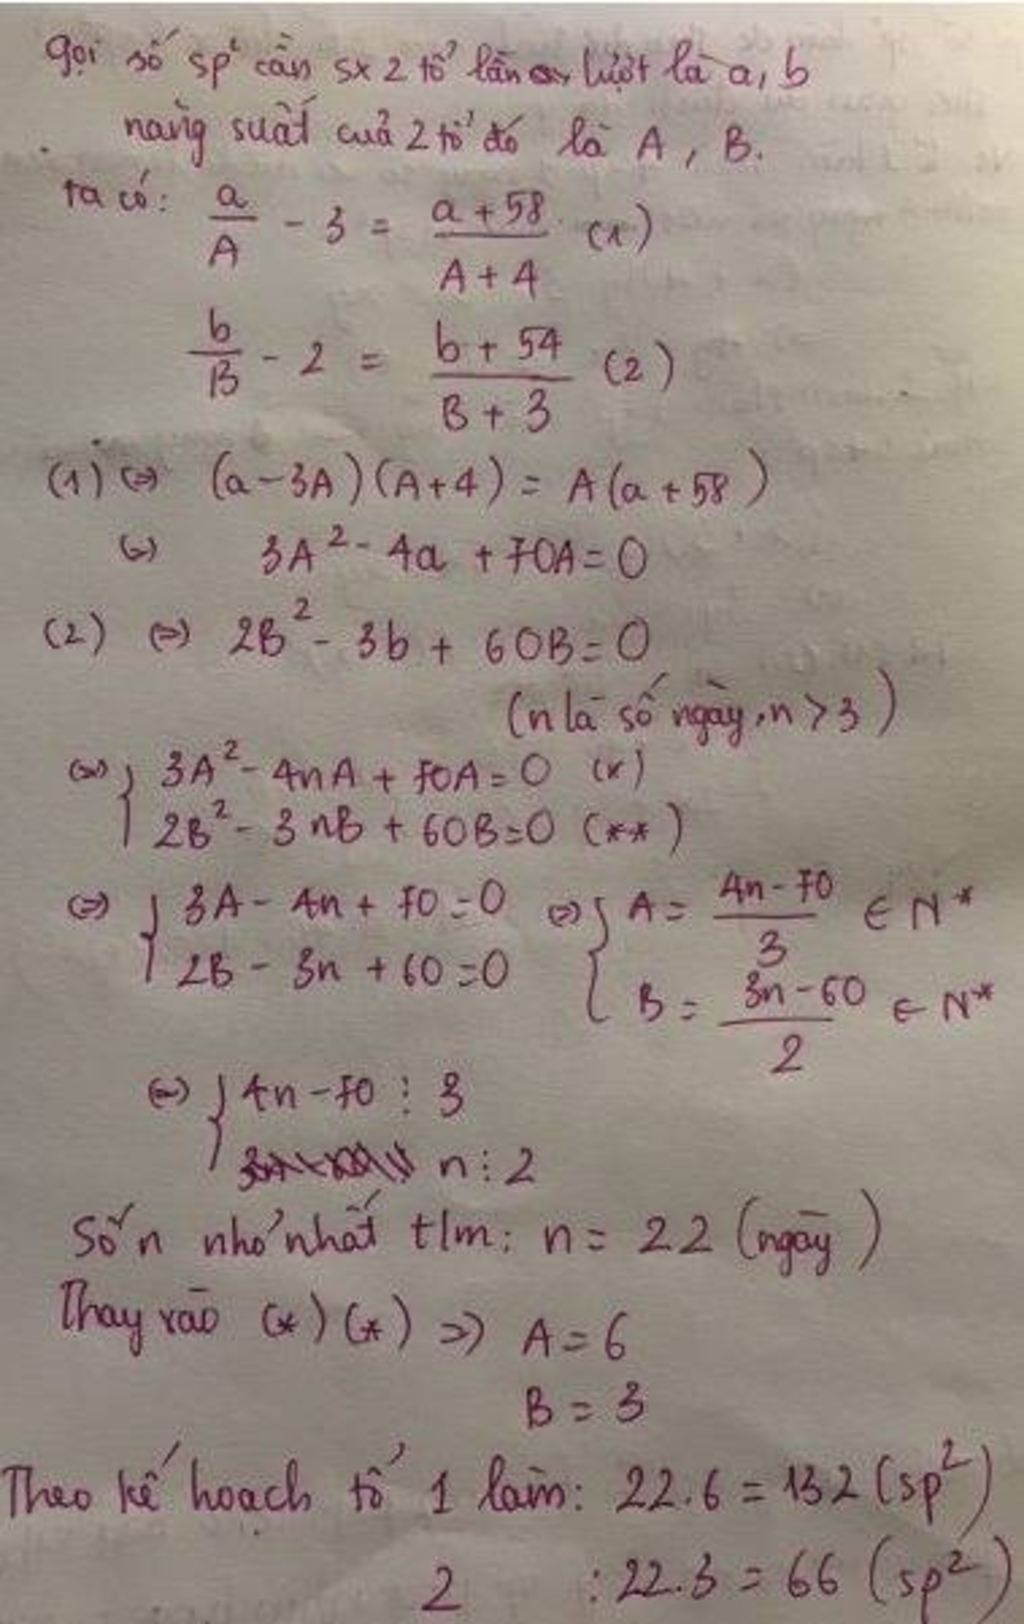 Gọi số sp² cần sx 2 tổ lần lượt là a, b
năng suất của 2 tổ đó là A, B.
ta có: a/A - 3 = (a + 58)/(A + 4) (1)
b/B - 2 = (b + 54)/(B + 3) (2)
(1) (=) (a-3A)(A+4) = A(a+58)
(=) 3A² - 4a + 70A = 0
(2) (=) 2B² - 3b + 60B = 0
(n là số ngày, n > 3)
(=) { 3A² - 4nA + 70A = 0 (*)
2B² - 3nB + 60B = 0 (**)
(=) { 3A - 4n + 70 = 0 (=) { A = (4n-70)/3 ∈ N*
2B - 3n + 60 = 0 B = (3n-60)/2 ∈ N*
(=) { 4n - 70 ⋮ 3
n ⋮ 2
Số n nhỏ nhất t/m: n = 22 (ngày)
Thay vào (*)(*) => A = 6
B = 3
Theo kế hoạch tổ 1 làm: 22.6 = 132 (sp²)
2 : 22.3 = 66 (sp²)